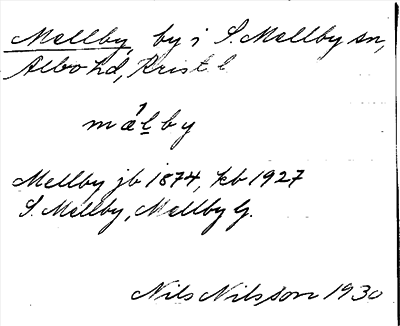 Mellby, by i S. Mellby sn,
Albo hd, Krist l
mä́lby
Mellby jb 1874, kb 1927
S. Mellby, Mellby G.
Nils Nilsson 1930